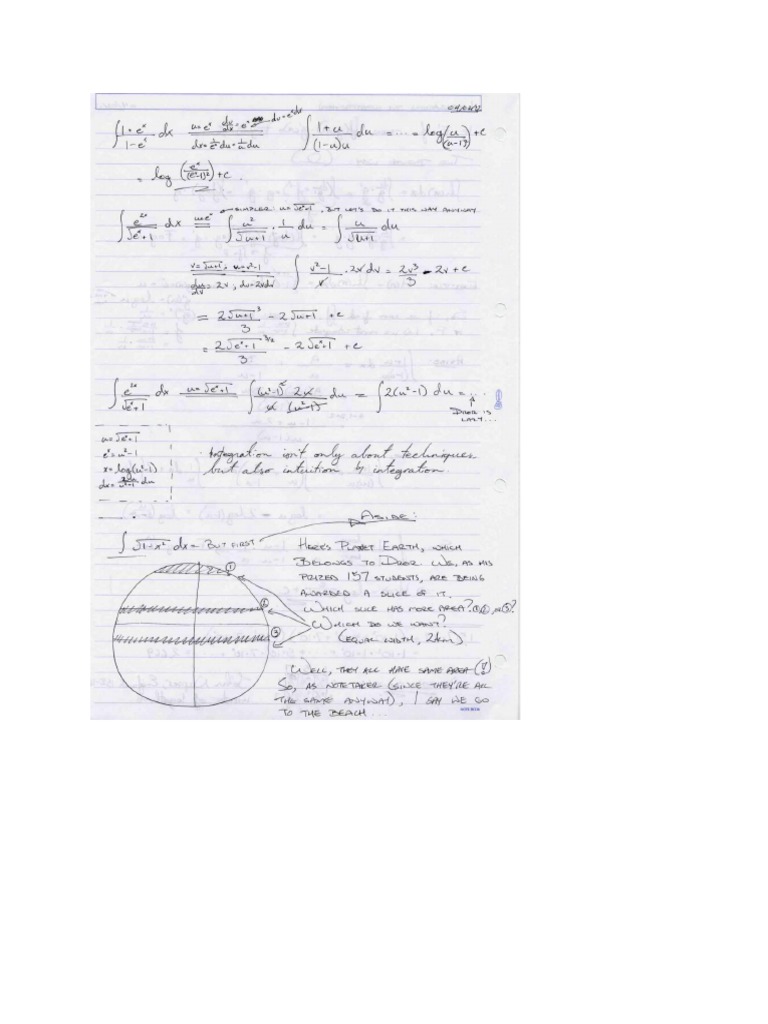 ∫ (1+e^x)/(1-e^x) dx  u=e^x  du/dx=e^x  du=e^x dx  dx=1/e^x du=1/u du  ∫ (1+u)/((1-u)u) du = ... = log(u/(u-1)²)+c
= log(e^x/(e^x-1)²)+c.
SIMPLER: u=√(e^x+1), BUT LET'S DO IT THIS WAY ANYWAY
∫ e^2x/√(e^x+1) dx  u=e^x  = ∫ u²/√(u+1) · 1/u du = ∫ u/√(u+1) du
v=√(u+1), u=v²-1  du/dv=2v, du=2vdv  ∫ (v²-1)/v · 2v dv = 2v³/3 - 2v + c
= 2√(u+1)³/3 - 2√(u+1) + c
= 2√(e^x+1)^3/2 /3 - 2√(e^x+1) + c
∫ e^2x/√(e^x+1) dx  u=√(e^x+1)  ∫ (u²-1)²/u · 2u/(u²-1) du = ∫ 2(u²-1) du = ...
DROR IS
LAZY...
u=√(e^x+1)
e^x=u²-1
x=log(u²-1)
dx=2u/(u²-1) du
Integration isn't only about techniques
but also intuition & integration.
ASIDE:
∫ √(1-x²) dx = BUT FIRST
HERE'S PLANET EARTH, WHICH
BELONGS TO DROR. WE, AS HIS
PRIZED 157 STUDENTS, ARE BEING
AWARDED A SLICE OF IT.
WHICH SLICE HAS MORE AREA? ①,②, OR ③?
WHICH DO WE WANT?
(EQUAL WIDTH, 2km)
①
②
③
WELL, THEY ALL HAVE SAME AREA (!)
SO, AS NOTETAKER (SINCE THEY'RE ALL
THE SAME ANYWAY), I SAY WE GO
TO THE BEACH...